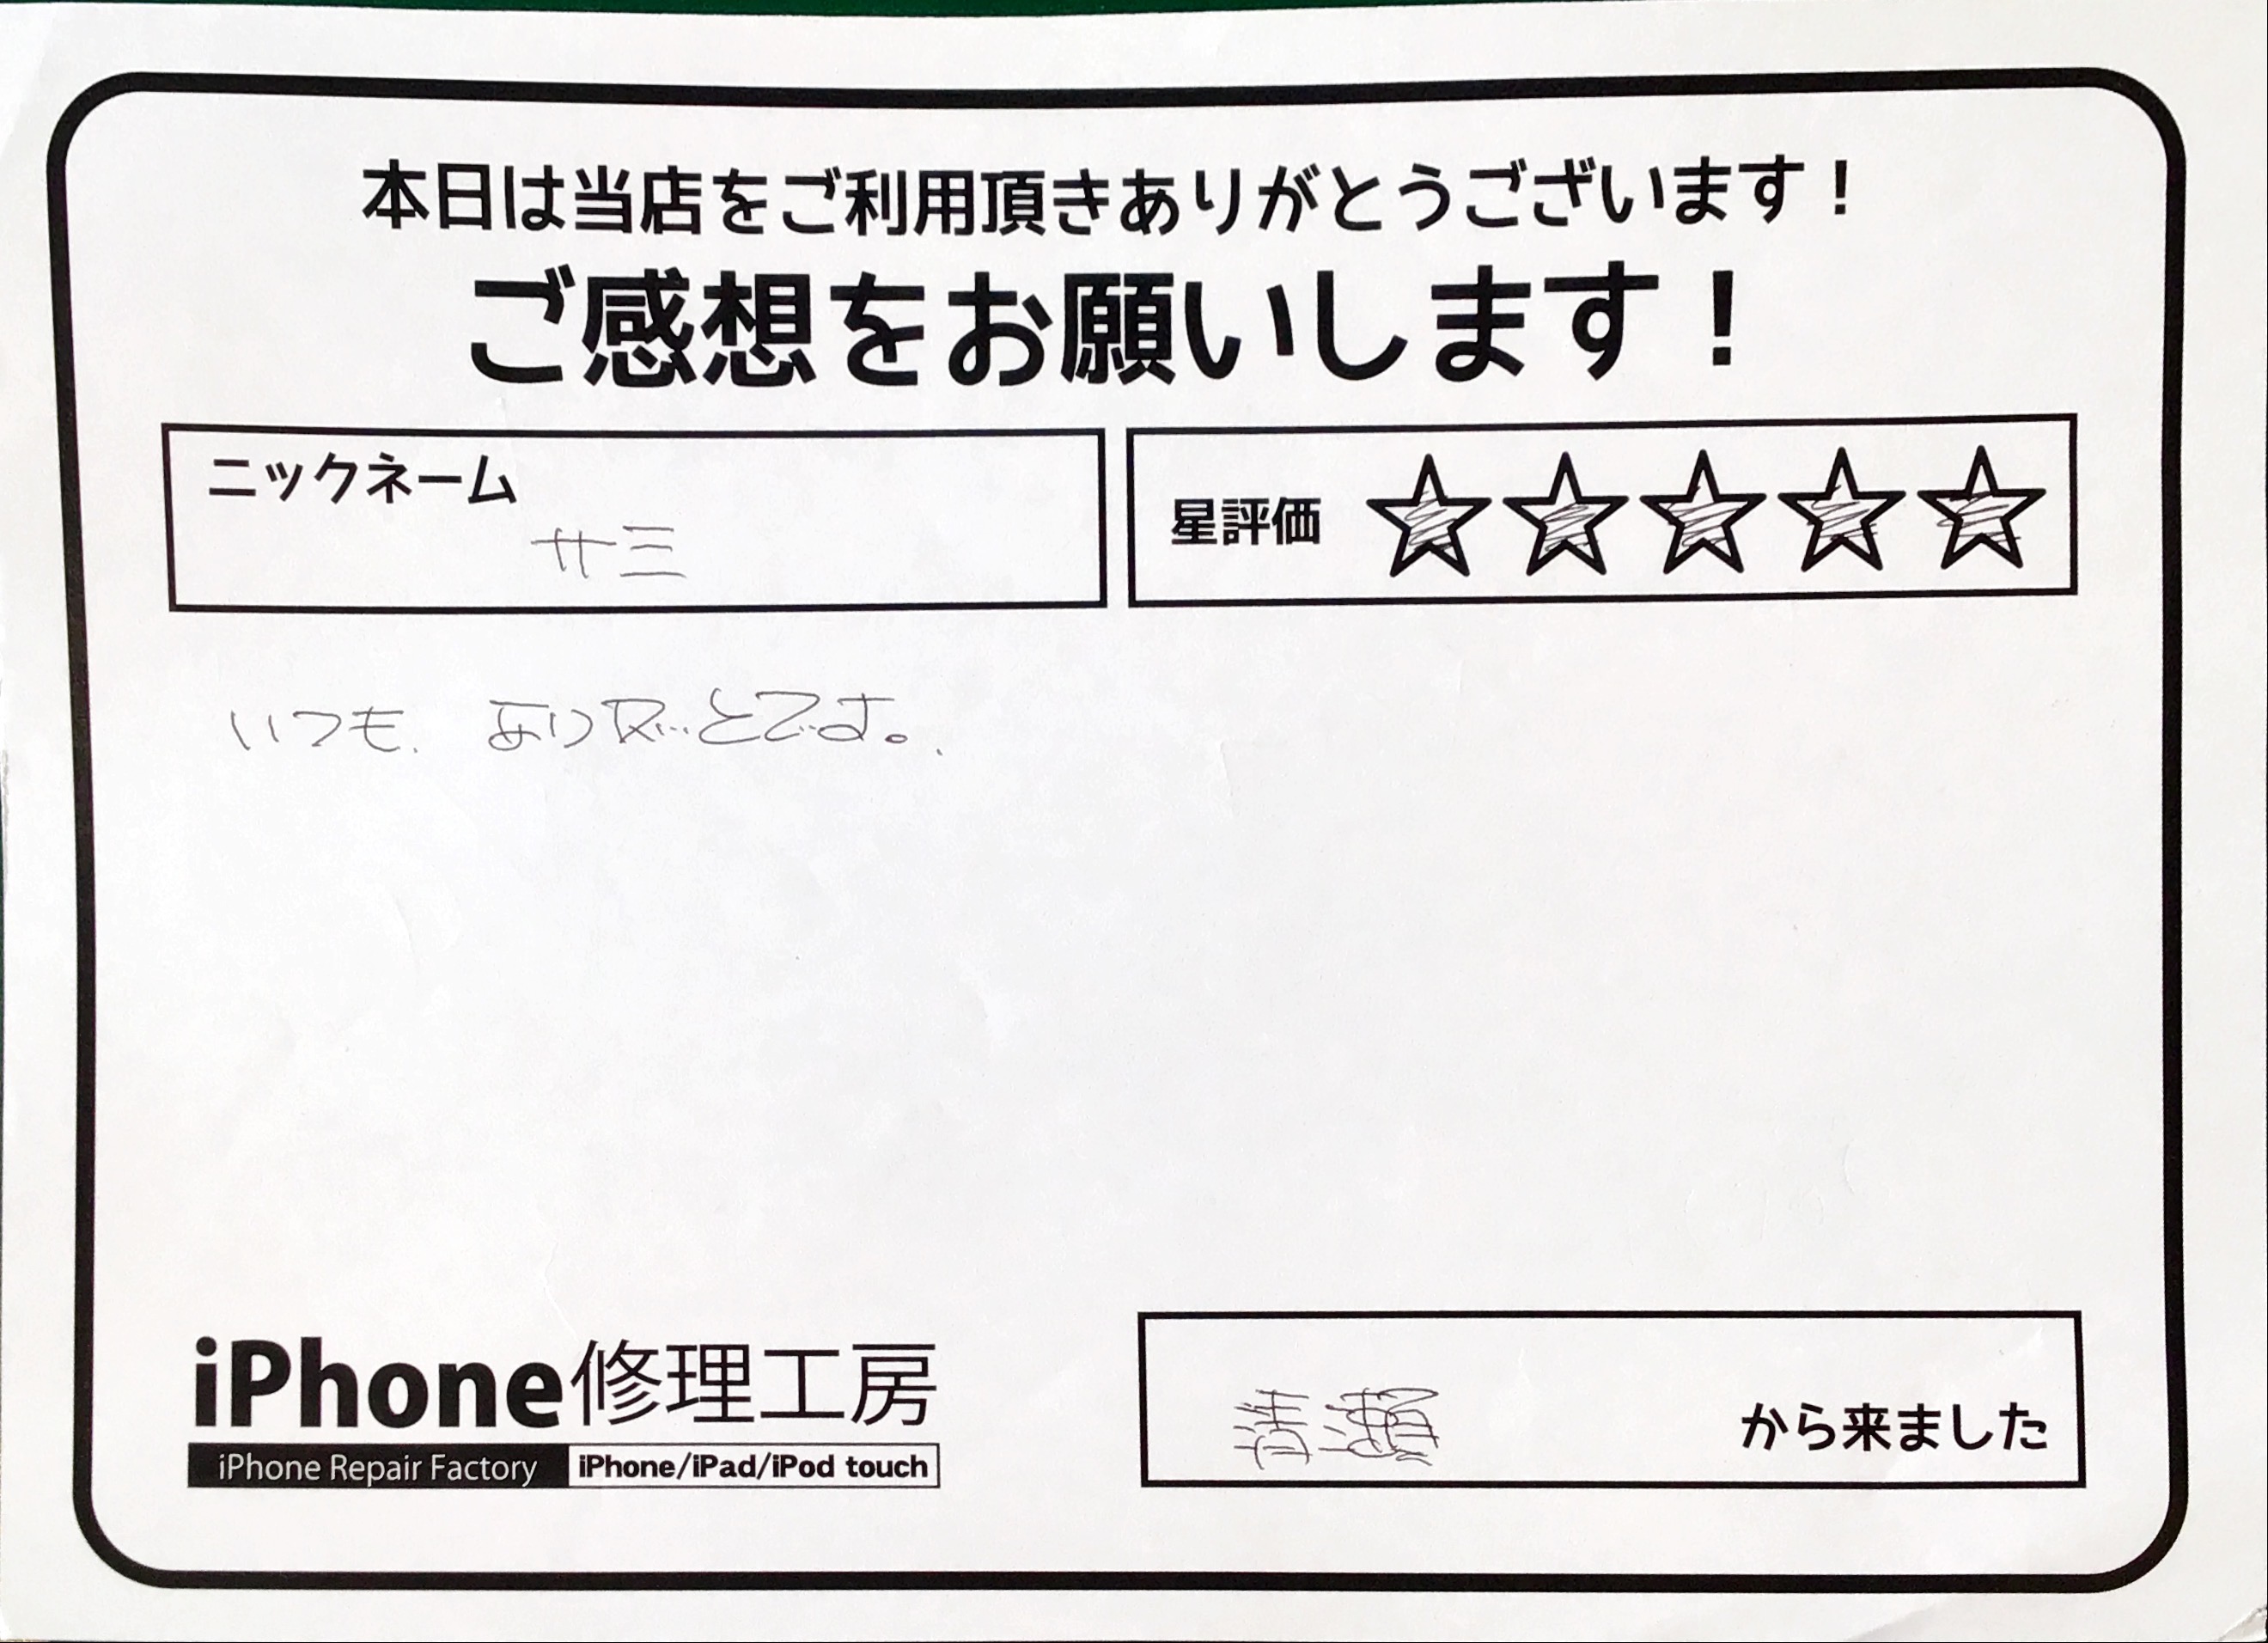 本日は当店をご利用頂きありがとうございます！
ご感想をお願いします！
ニックネーム
サミ
星評価 ☆☆☆☆☆
いつも、ありがとです。
iPhone修理工房
iPhone Repair Factory iPhone/iPad/iPod touch
清瀬 から来ました